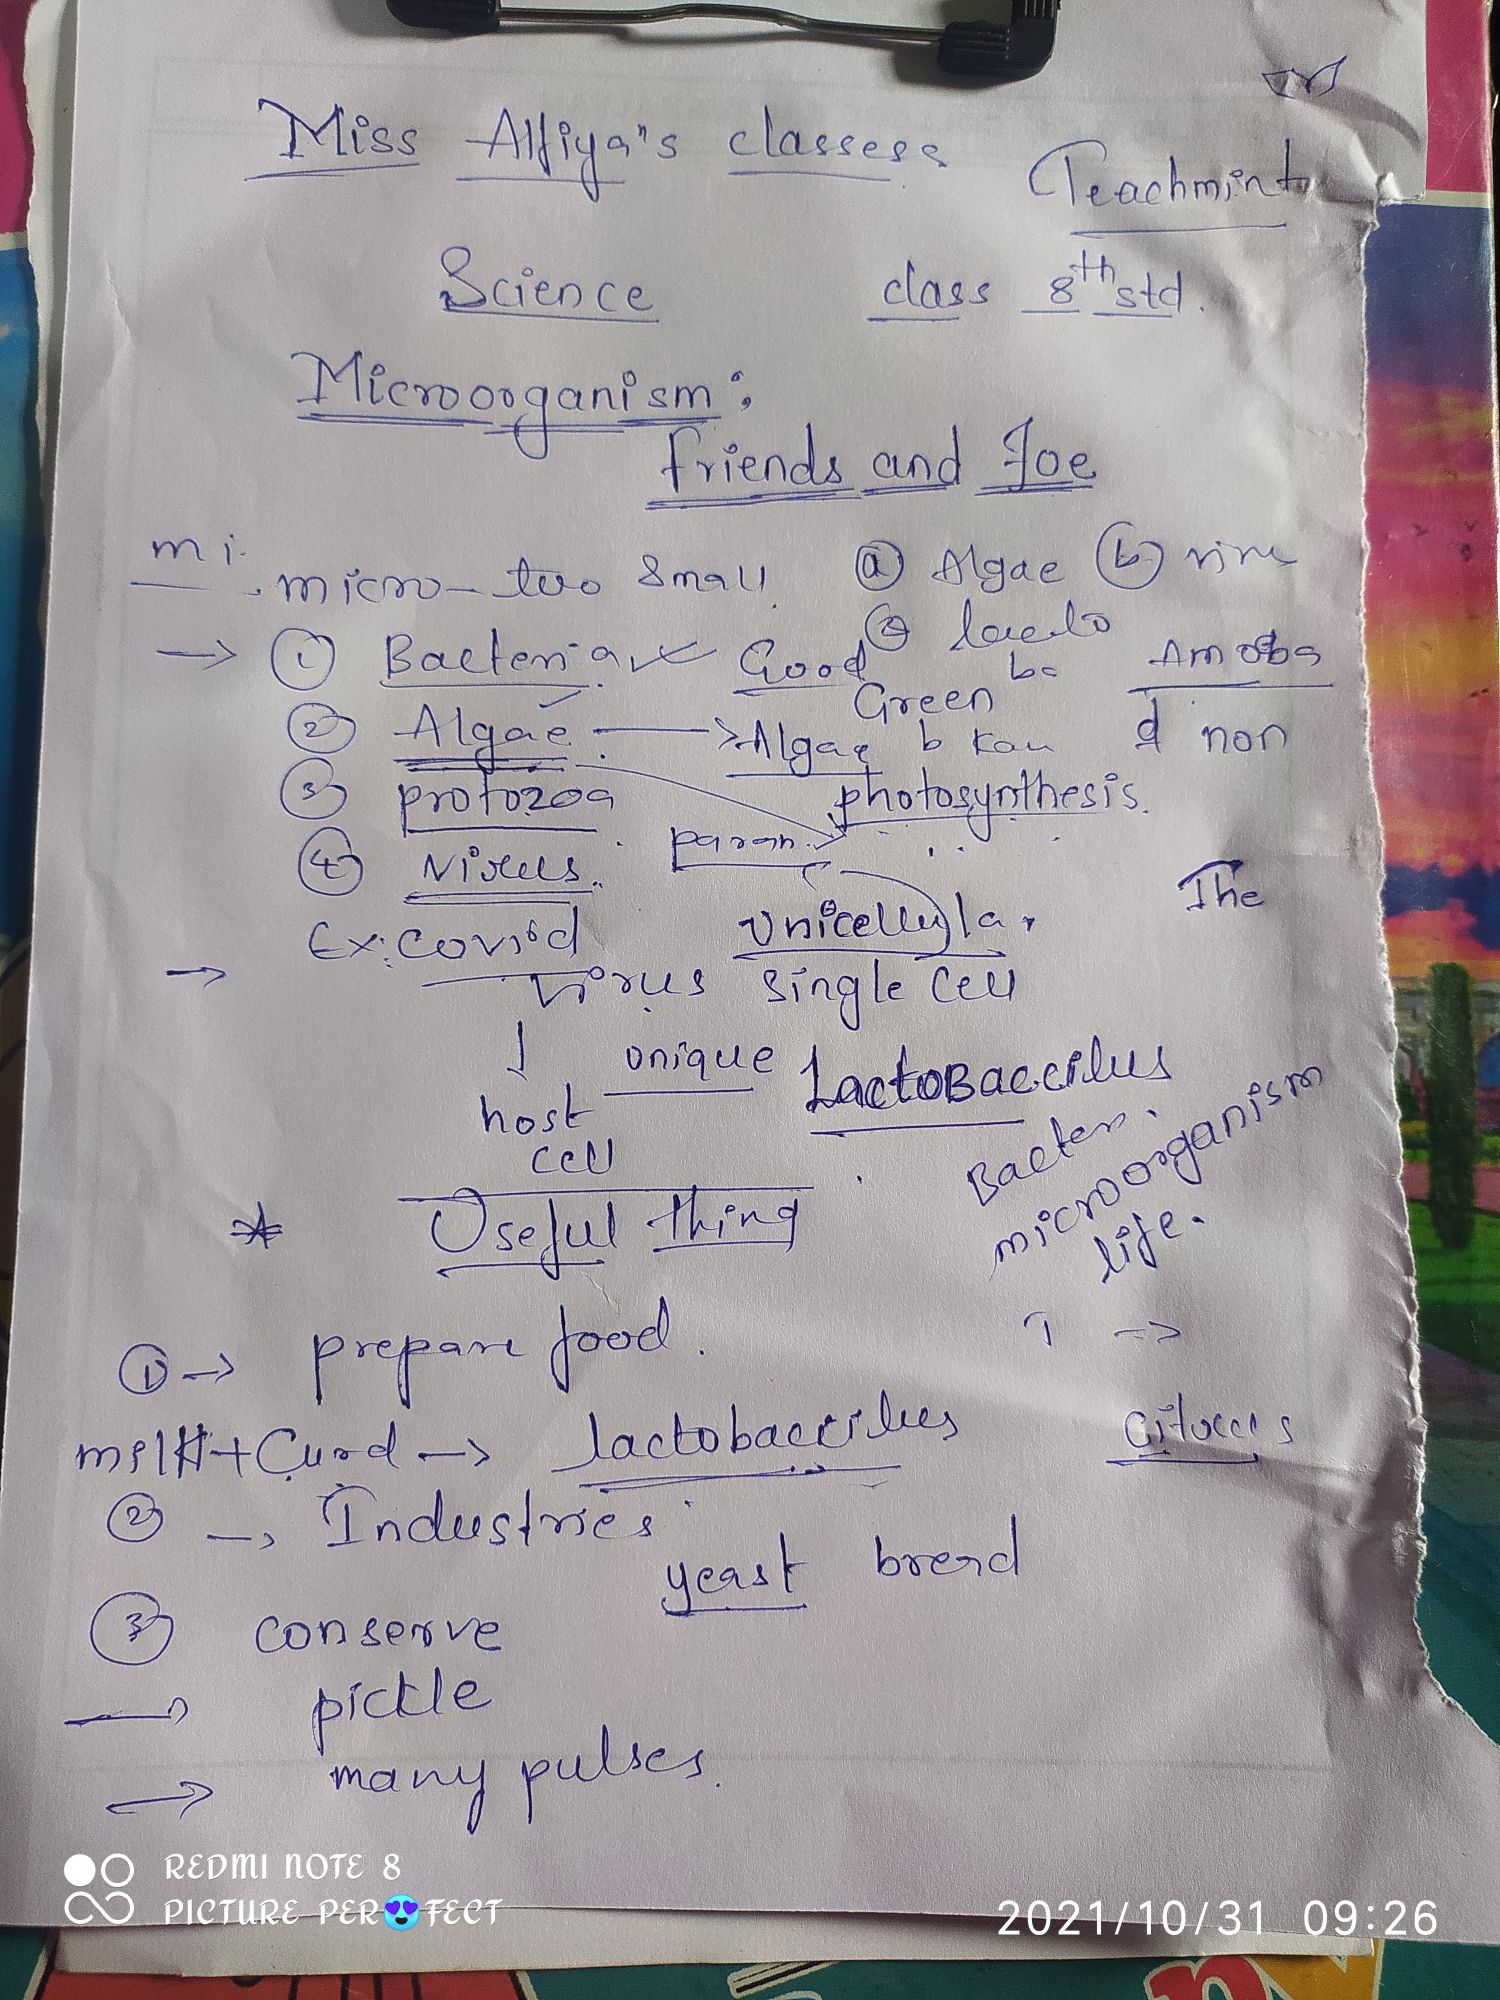 Miss Alfiya's classess
Teachmint
Science class 8th std.
Microorganism:
friends and Foe
mi.
micro - too small
a Algae b
lacto
→ 1 Bacteria Good
ba
Amoeba
Green
2 Algae → Algae b d non
3 protozoa photosynthesis.
param.
4 Virus.
The
Ex: Covid unicellular
→ virus single cell
↓ unique LactoBaccilus
host
cell
Bacter.
microorganism
life.
* Useful thing
1 → prepare food.
milk + Curd → lactobaccilus
2 → Industries
yeast bread
3 conserve
→ pickle
→ many pulses.
REDMI NOTE 8
PICTURE PER😍FECT
2021/10/31 09:26